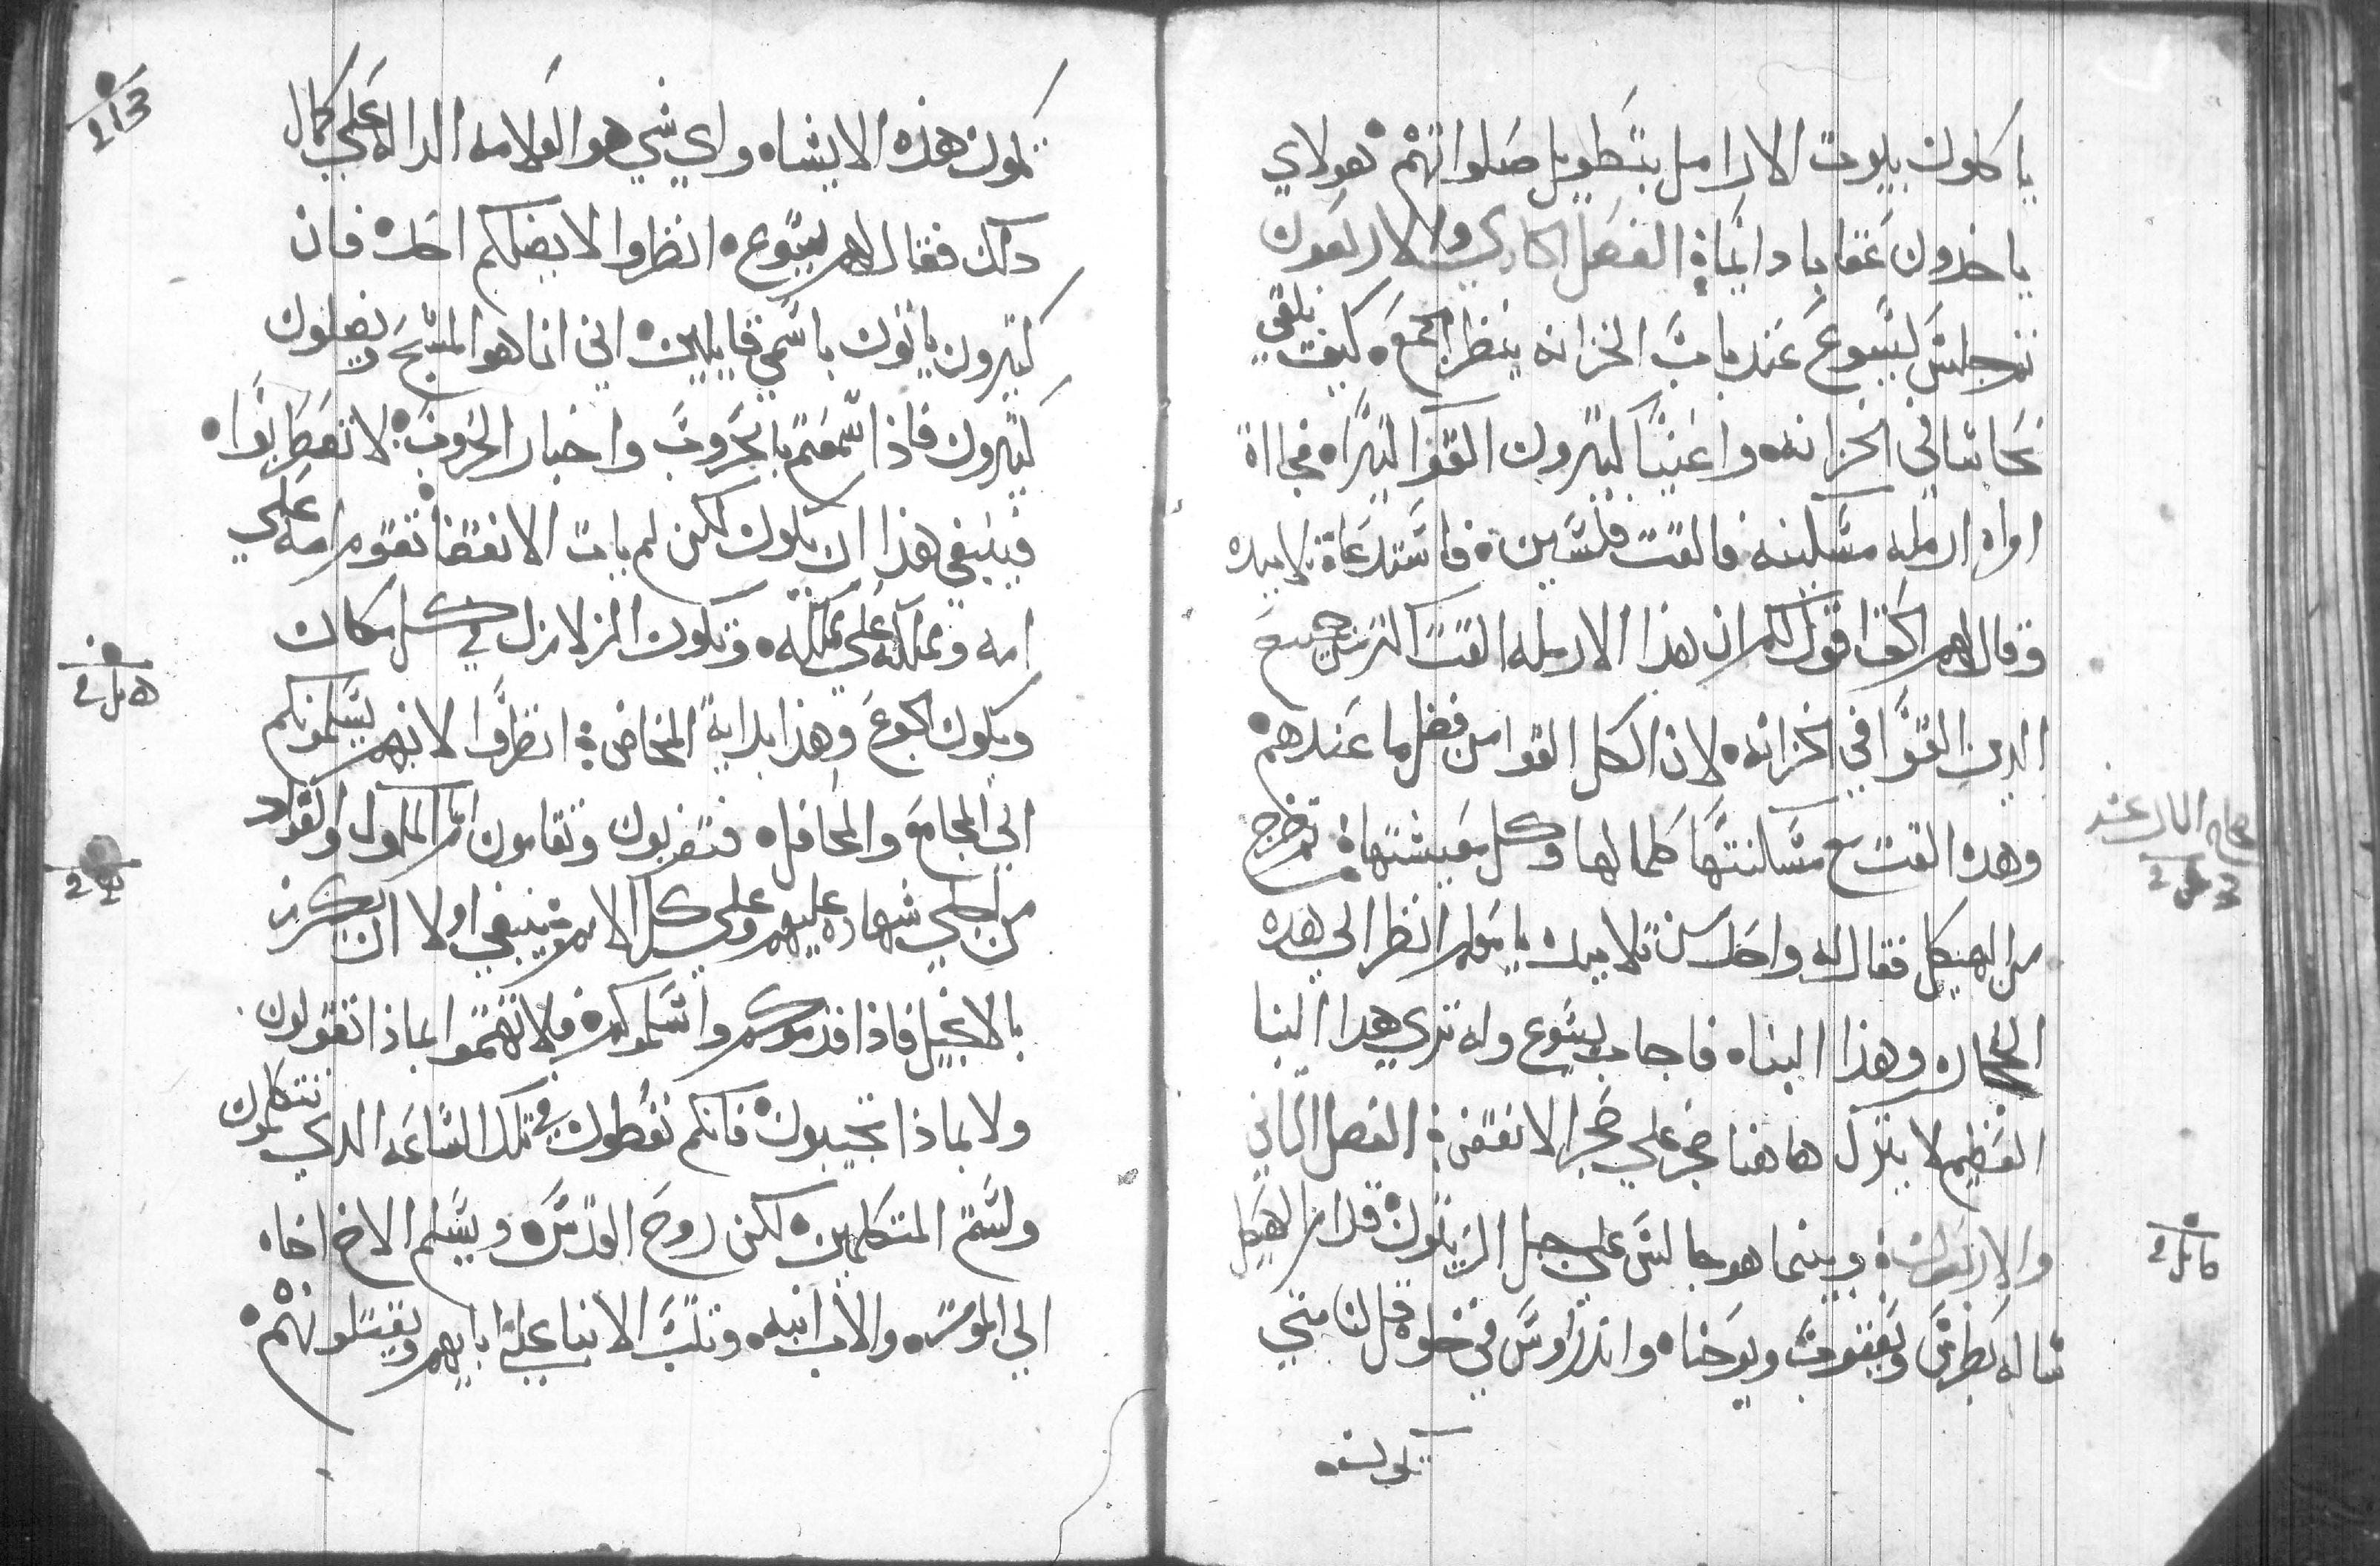 ياكلون بيوت الارامل بتطويل صلواتهم فهولاي
ياخدون عقابا دايما الفصل الحادي والاربعون
ثم جلس يسوع عند باب الخزانه ينظر الجمع كيف تلقي
نحاسا في الخزانه واغنيا كتيرون القوا كتيرا فجااة
امراه ارمله مسكينه فالقت فلسين فاستدعا تلاميده
وقال لهم الحق اقول لكم ان هذا الارمله القت اكتر من جميع
الدين القوا في الخزانه لان الكل القوا من فضل ما عندهم
وهده القت مع مسكنتها كلما لها وكل معيشتها تم خرج
من الهيكل فقال له واحد من تلاميده يا معلم انظر الي هده
الحجاره وهذا البناه فاجاب يسوع وله تري هدا البنا
العظيم لا يترك هاهنا حجر علي حجر الا نقض الفصل التاني
والاربعون وبينما هو جالس علي جبل الزيتون قدام الهيكل
ساله بطرس ويعقوب ويوحنا واندراوس في خلوه قل لنا متي
تكون
تكون هذه الاشياه واي شي هو العلامه الداله علي كمال
دلك فقال لهم يسوع انظروا لا يضلكم احد فان
كتيرون ياتون باسمي قايلين اني انا هو المسيح ويضلون
كتيرون فاذا سمعتم بالحروب واخبار الحروب لا تضطربوا
فينبغي هذا ان يكون لكن لم يات الانقضا تقوم امه علي
امه ومملكه علي مملكه وتكون الزلازل في كل مكان
ويكون الجوع وهذا بداية المخاض انظروا لانهم يسلمونكم
الي المجامع والمحافل فتضربون وتقامون امام الملوك والقواد
من اجلي شهاده عليهم وعلي كل الامم فينبغي اولا ان يكرز
بالانجيل فاذا قدموكم واسلموكم فلا تهتموا بماذا تقولون
ولا بماذا تجيبون فانكم تعطون في تلك الساعه الدي تتكلمون
ولستم المتكلمين لكن روح القدس ويسلم الاخ اخاه
الي الموت والاب ابنه وتتب الابنا علي ابايهم ويقتلونهم